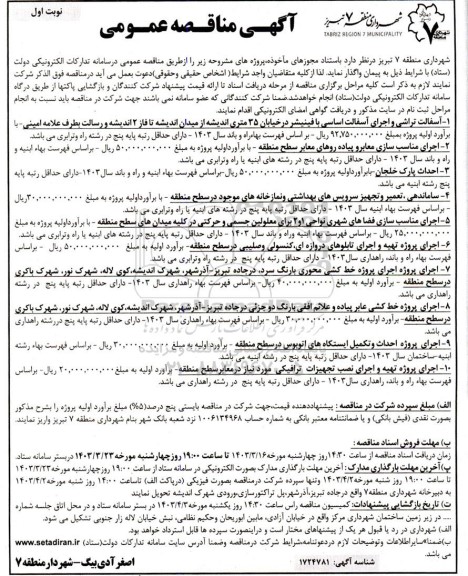 نوبت اول
آگهی مناقصه عمومی
شهرداری منطقه ۷ تبریز
TABRIZ REGION 7 MUNICIPALITY
شهرداری منطقه ۷ تبریز درنظر دارد باستناد مجوزهای مأخوذه،پروژه های مشروحه زیر را ازطریق مناقصه عمومی درسامانه تدارکات الکترونیکی دولت
(ستاد) با شرایط ذیل به پیمان واگذار نماید. لذا از کلیه متقاضیان واجد شرایط( اشخاص حقیقی وحقوقی)دعوت بعمل می آید درمناقصه فوق الذکر شرکت
نمایند لازم به ذکر است کلیه مراحل برگزاری مناقصه از مرحله دریافت اسناد تا ارائه قیمت پیشنهاد شرکت کنندگان و بازگشایی پاکتها از طریق درگاه
سامانه تدارکات الکترونیکی دولت(ستاد) انجام خواهدشد.ضمنا شرکت کنندگانی که عضو سامانه نمی باشند جهت شرکت در مناقصه باید نسبت به انجام
مراحل ثبت نام در سایت مذکور و دریافت گواهی امضای الکترونیکی اقدام نمایند.
۱- آسفالت تراشی و اجرای آسفالت اساسی با فینیشر در خیابان ۳۵ متری اندیشه از میدان اندیشه تا فاز ۲ اندیشه و رسالت بطرف علامه امینی -با
برآورد اولیه پروژه بمبلغ ۹۲,۷۵۰,۰۰۰,۰۰۰ ریال - بر اساس فهرست بهاءراه و باند سال ۱۴۰۳ - دارای حداقل رتبه پایه پنج در رشته راه وترابری می باشد.
۲- اجرای مناسب سازی معابرو پیاده روهای معابر سطح منطقه - بابرآورد اولیه پروژه به مبلغ ۵۰,۰۰۰,۰۰۰,۰۰۰ ریال - براساس فهرست بهاء ابنیه و
راه و باند سال ۱۴۰۳ - دارای حداقل رتبه پایه پنج در رشته های ابنیه یا راه وترابری می باشد.
۳- احداث پارک خلجان -بابرآورد اولیه پروژه به مبلغ ۵۰,۰۰۰,۰۰۰,۰۰۰ریال - براساس فهرست بهاء ابنیه وراه وباند سال۱۴۰۳-دارای حداقل رتبه پایه
پنج رشته ابنیه می باشد.
۴- ساماندهی ،تعمیر و تجهیز سرویس های بهداشتی ونمازخانه های موجود درسطح منطقه - بابرآورد اولیه به مبلغ ۳۰,۰۰۰,۰۰۰,۰۰۰ریال
- براساس فهرست بهاء ابنیه سال۱۴۰۳ - دارای حداقل رتبه پایه پنج در رشته های ابنیه یا راه وترابری می باشد.
۵- اجرای مناسب سازی فضا های شهری نواحی ۱و۲ برای معلولین جسمی وحرکتی در کلیه میدان های سطح منطقه - بابرآورد اولیه پروژه به مبلغ
۲۵,۰۰۰,۰۰۰,۰۰۰ ریال - براساس فهرست بهاء ابنیه وراه و باند سال ۱۴۰۳ - دارای حداقل رتبه پایه پنج در رشته های ابنیه یا راه وترابری می باشد.
۶- اجرای پروژه تهیه و اجرای تابلوهای دروازه ای،کنسولی وصلیبی درسطح منطقه - برآورد اولیه به مبلغ ۵۰,۰۰۰,۰۰۰,۰۰۰ ریال - براساس
فهرست بهاء راه و باند، راهداری سال۱۴۰۳ - دارای حداقل رتبه پایه پنج در رشته های ابنیه یا راه وترابری می باشد.
۷- اجرای پروژه اجرای پروژه خط کشی محوری بارنگ سرد، درجاده تبریز-آذرشهر، شهرک اندیشه،کوی لاله، شهرک نور، شهرک باکری
درسطح منطقه - برآورد اولیه به مبلغ ۴۰,۰۰۰,۰۰۰,۰۰۰ ریال - براساس فهرست بهاء راهداری سال ۱۴۰۳ - دارای حداقل رتبه پایه پنج در رشته
راهداری می باشد.
۸- اجرای پروژه خط کشی عابر پیاده و علائم افقی بارنگ دو جزئی درجاده تبریز-آذرشهر، شهرک اندیشه،کوی لاله، شهرک نور، شهرک باکری
درسطح منطقه - برآورد اولیه به مبلغ ۳۰,۰۰۰,۰۰۰,۰۰۰ ریال - براساس فهرست بهاء راهداری سال ۱۴۰۳- دارای حداقل رتبه پایه پنج در رشته راهداری
می باشد.
۹- اجرای پروژه احداث وتکمیل ایستگاه های اتوبوس درسطح منطقه - برآورد اولیه به مبلغ ۳۰,۰۰۰,۰۰۰,۰۰۰ ریال - براساس فهرست بهاء
ابنیه-ساختمان سال۱۴۰۳- دارای حداقل رتبه پایه پنج در رشته ابنیه می باشد.
۱۰- اجرای پروژه تهیه و اجرای نصب تجهیزات ترافیکی مورد نیاز درمعابرسطح منطقه - برآورد اولیه به مبلغ ۲۰,۰۰۰,۰۰۰,۰۰۰ ریال - براساس
فهرست بهاء راه و باند، راهداری سال۱۴۰۳ - دارای حداقل رتبه پایه پنج در رشته راهداری می باشد.
الف) مبلغ سپرده شرکت در مناقصه : پیشنهاددهنده قیمت،جهت شرکت در مناقصه بایستی پنج درصد(۵%) مبلغ برآورد اولیه پروژه را بشرح مذکور
بصورت نقدی (فیش بانکی) و یا ضمانتنامه معتبر بانکی به شماره حساب ۱۰۰۶۱۳۴۹۶۸ نزد شعبه بانک شهر بنام شهرداری منطقه ۷ تبریز واریز نمایند.
ب) مهلت فروش اسناد مناقصه :
زمان دریافت اسناد مناقصه از ساعت ۱۴:۳۰روز چهارشنبه مورخه۱۴۰۳/۳/۱۶ تا ساعت ۱۹:۰۰روزچهارشنبه مورخه ۱۴۰۳/۳/۲۳ دربستر سامانه ستاد.
پ)آخرین مهلت بارگذاری مدارک : آخرین مهلت بارگذاری مدارک بصورت الکترونیکی در سامانه ستاد از ساعت ۱۹:۰۰ روز چهارشنبه مورخه۱۴۰۳/۳/۲۳
تا ساعت ۱۴:۰۰ روز چهارشنبه مورخه ۱۴۰۳/۴/۲ وتنها سپرده شرکت درمناقصه بصورت فیزیکی (درپاکت الف) تاساعت ۱۴:۰۰ روز چهارشنبه مورخه۱۴۰۳/۴/۲
به دبیرخانه شهرداری منطقه۷ واقع درجاده تبریز،آذرشهر،پل تراکتورسازی،ورودی شهرک اندیشه تحویل نمایند
ت) تاریخ بازگشایی پیشنهادات: کمیسیون مناقصه راس ساعت ۱۴:۳۰ روز یکشنبه مورخه۱۴۰۳/۴/۳ در بستر سامانه ستاد و در محل اتاق جلسه شماره
.... در زیر زمین ساختمان شهرداری مرکز واقع در خیابان آزادی، مابین ابوریحان وحکیم نظامی، نبش خیابان لاله زار جنوبی تشکیل می شود.
الف) شهرداری در رد یا قبول هر یک از پیشنهاد های مختار است ودراینصورت سپرده ها قابل استرداد خواهد بود.
ب)ضمناً سایراطلاعات وتوضیحات لازم دردعوتنامه شرکت درمناقصه وضمناً آدرس سایت سامانه تدارکات دولت(ستاد):www.setadiran.ir می باشد.
شناسه آگهی: ۱۷۲۴۷۸۱
اصغر آدی بیگ - شهردار منطقه ۷